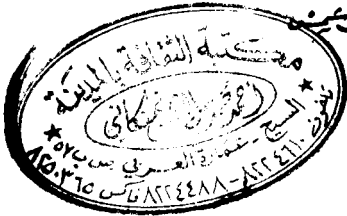 مكتبة الثقافة بالمدينة
السيح - عمارة العربي ص ب ٥٧
تلفون ٨٢٢٤٦١٠ - ٨٢٢٤٤٨٨ فاكس ٨٢٥٠٣٦٥